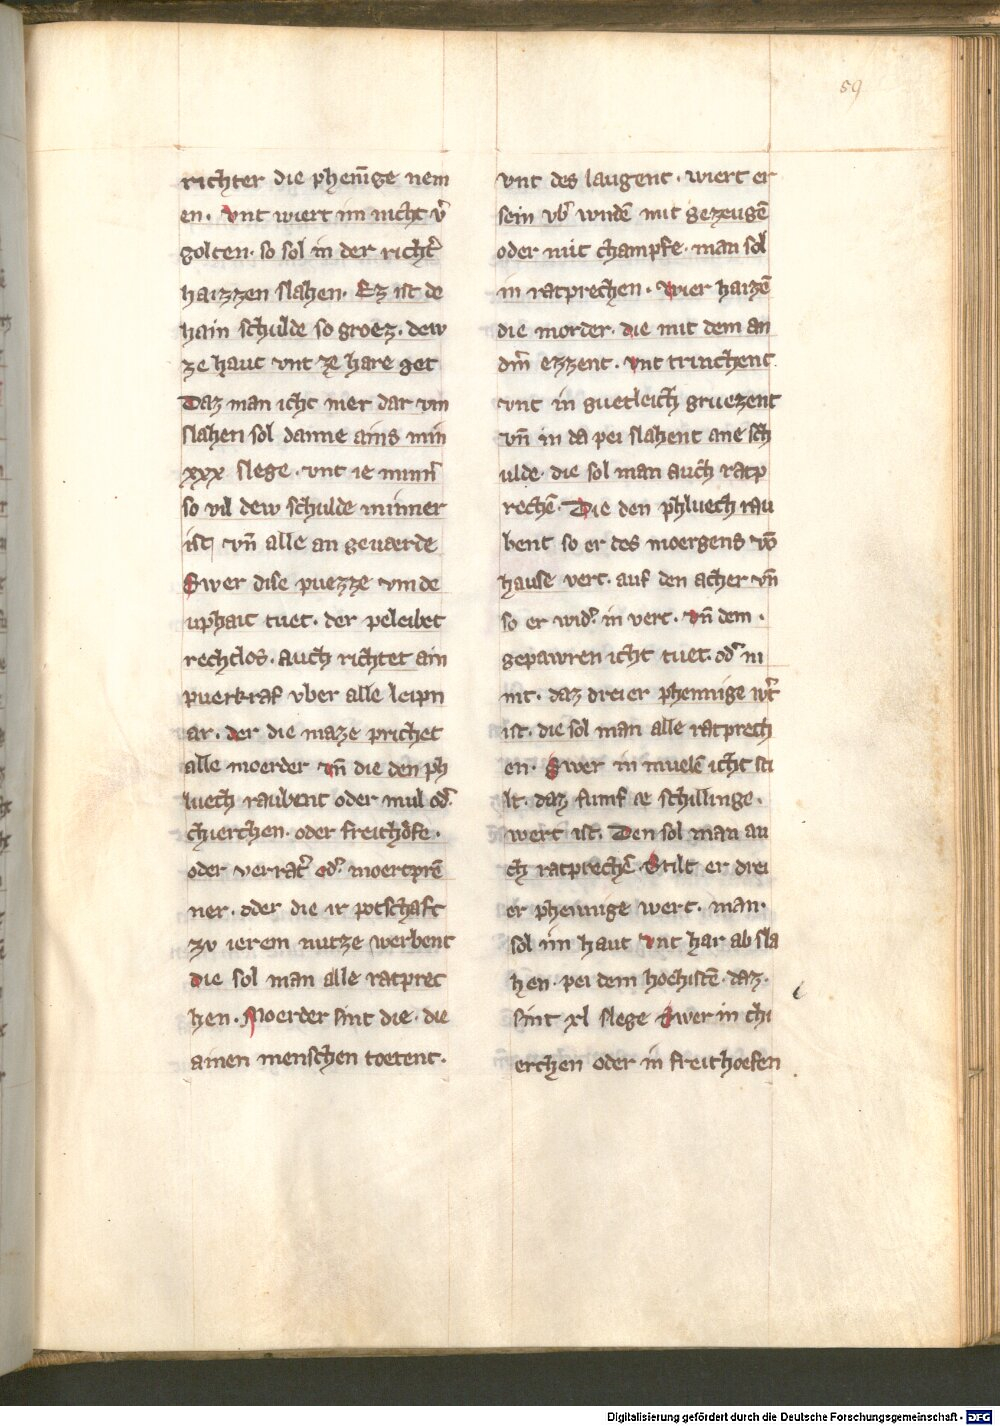 59
richter die phenīge nem
en. vnt wiert im nicht v̾
golten. so sol in der richt̾
haizzen slahen. Ez ist de
hain schulde so groez. dew
ze haut vnt ze hare get
Daz man icht mer dar vm
slahen sol danne ains min
xxx slege. vnt ie minn̾
so vil dew schulde minner
ist vn̄ alle an geuaerde
Swer dise puezze vm de
uphait tuet. der peleibet
rechtlos. Auch richtet ain
puerkraf vber alle leipn
ar. der die maze prichet
alle moerder vn̄ die den ph
luech raubent oder mul od̾
chierchen. oder freithofe.
oder verrat̾ od̾ moertprē
ner. oder die ir potschaft
zv ierem nutze werbent
die sol man alle ratprec
hen. Moerder sint die. die
ainen menschen toetent.
vnt des laugent. wiert er
sein vb̾ wndē mit gezeugē
oder mit champfe. man sol
in ratprechen. wier haizē
die morder. die mit dem an
dm̄ ezzent. vnt trinchent
vnt in guetleich gruezent
vn̄ in da pei slahent ane sch
ulde. die sol man auch ratp
rechē. Die den phluech rau
bent so er des moergens vō
hause vert. auf den acher vn̄
so er wid̾ in vert. vn̄ dem.
gepawren icht tuet. od̾ ni
mt. daz dreier phennige w̾t
ist. die sol man alle ratprech
en. Swer in muelē icht sti
lt. daz fumf æ schillinge.
wert ist. Den sol man au
ch ratprechē. Stilt er drei
er phennige wert. man.
sol im haut vnt har ab sla
hen. pei dem hochistē. daz.
sint xl slege Swer in chi
erchen oder in freithoefen
Digitalisierung gefördert durch die Deutsche Forschungsgemeinschaft - DFG